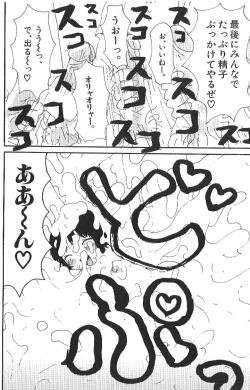 最後にみんなで
たっぷり精子
ぶっかけてやるぜ♡
スコ
お、いいねー。
スコ
スコ
うおーっ。
スコ
スコ
オリャオリャー。
スコ
スコ
うぅ〜っ
で、出る〜っ♡
スコ
スコ
どぷっ♡
ああ〜ん♡